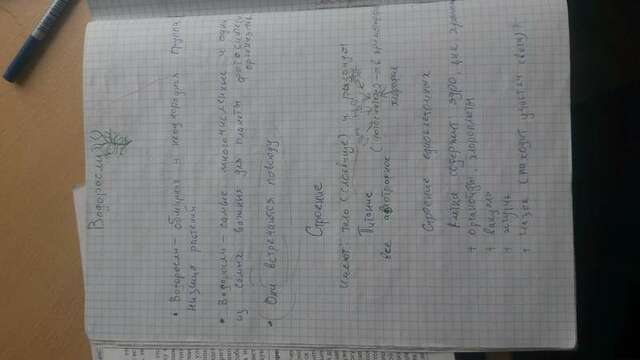 Водоросли
• Водоросли - обширная и неоднородная группа
низших растений.
• Водоросли - самые многочисленные и одни
из самых важных для планеты фотосинтез
организмы
• Они встречаются повсюду
Строение
Имеют: тело (слоевище) и ризоиды
Питание
все автотрофное (фотосинтез) - в хромато
хлоропл
Строение одноклеточных
Клетка содержит: ядро, цит, хром
+ органоиды, хлоропласты
+ вакуоль
+ жгутик
+ глазок (находит участки света)